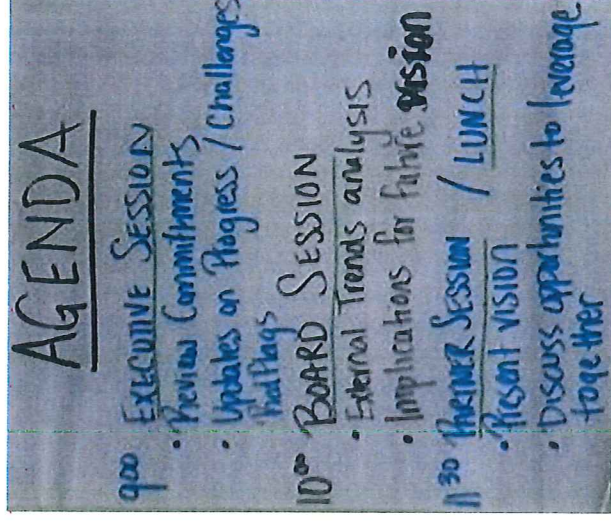 AGENDA
9:00 EXECUTIVE SESSION
• Review Commitments
• Updates on Progress / Challenges
Red flags
10:00 BOARD SESSION
• External Trends analysis
• Implications for future vision
11:30 PARTNER SESSION / LUNCH
• Present vision
• Discuss opportunities to leverage
together